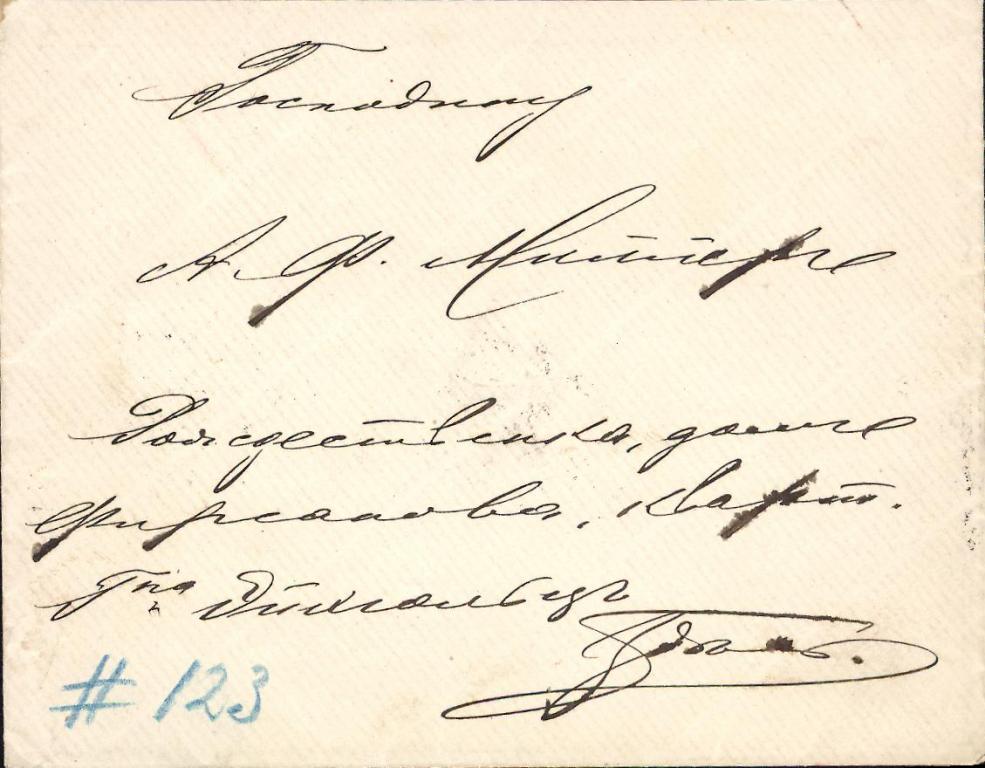 Господину
А. Ф. Миттерв
Рождественка, домъ
Фирсанова, кварт.
Гна
Здѣсь.
# 123